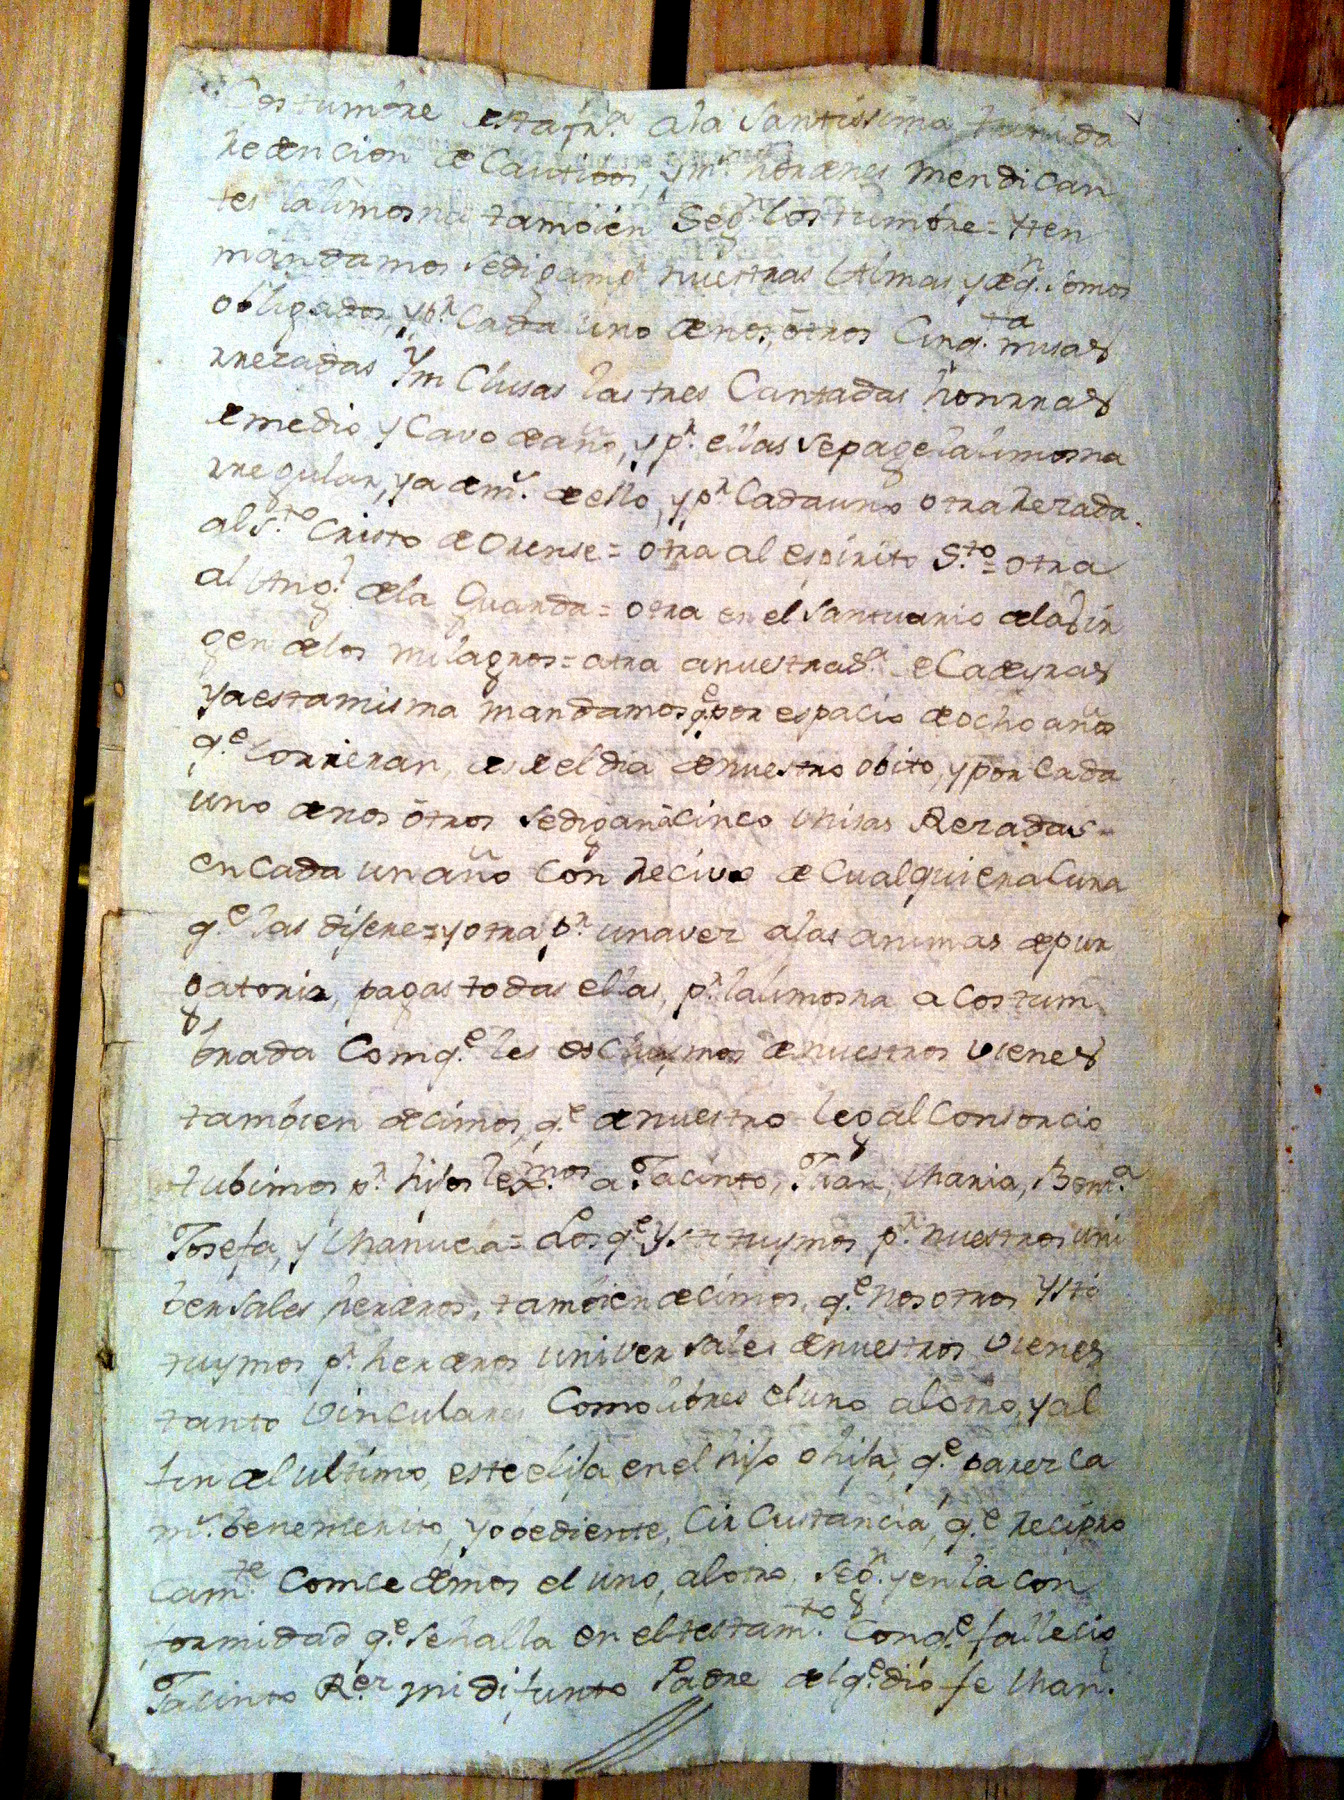 Costumbre esta pr.ª ala Santissima
redencion de Cautibos, y ms. hordenes mendican
tes lalimosna tambien Segn. Costumbre = Yten
mandamos sedigan pr. nuestras Almas y de qn. somos
obligados, y pr. Cada uno denos, otros Cinq.ta misas
rrezadas Ynclusas las tres Cantadas honrras
emedio y Cavo deaño, y pr. ellas sepage lalimosna
rregular, ya dems. dello, y pr. Cadauno otra rezada.
al S.to Cristo de Orense = otra al espirito S.to = otra
al Angl. dela Guarda = otra en el Santuario dela Vir
gen delos Milagros = otra anuestra Sª. e Cadeyras
yaestamisma mandamos q.e por espacio deocho años
q.e Correran, desde eldia denuestro obito, y por Cada
uno denos otros sedigan acinco Misas Rezadas =
en Cada unaño con recivo de Cualquiera Cura
q.e las dijere = y otra pr. unavez alas animas depur
gatorio, pagas todas ellas, pr. lalimosna acostum
brada Comq.e les escluymos denuestros vienes
tambien decimos, q.e denuestro legal Consorcio
tubimos pr. hijos lex.mos a Jacinto, Juan, Maria, Bern.ª
Josefa, y Manuela = Los q.e Ystituymos pr. nuestros uni
bersales herderos, tambien decimos, q.e nosotros Ysti
tuymos pr. herderos universales denuestros vienes
tanto Vinculares Comolibres eluno alotro, y al
fin del ultimo, este elija en el hijo o hija, q.e parezca
ms. benemerito, y obediente, Circustancia, q.e recipro
cam.te Comcedemos el uno, alotro, segn. y en la con
formidad q.e sehalla en el testam.to Conq.e fallecio
Jacinto Rez.r mi difunto Padre del q.e dio fe Man.